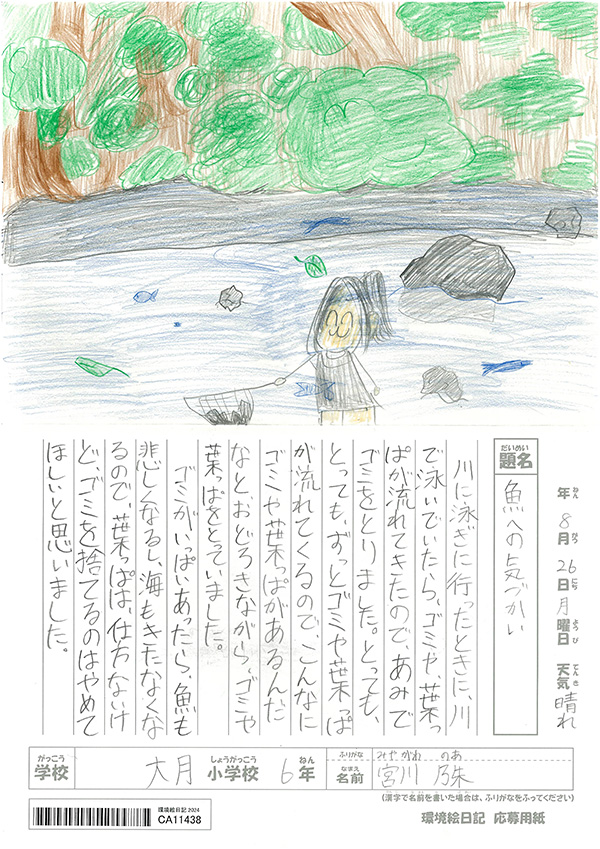 年 8月 26日 月曜日 天気 晴れ
ねん がつ にち ようび てんき
だいめい
題名
魚への気づかい
川に泳ぎに行ったときに、川
で泳いでいたら、ゴミや葉っ
ぱが流れてきたので、あみで
ゴミをとりました。とっても、
とっても、ずっとゴミや葉っぱ
が流れてくるので、こんなに
ゴミや葉っぱがあるんだ
なとおどろきながら、ゴミや
葉っぱをとっていました。
ゴミがいっぱいあったら、魚も
悲しくなるし、海もきたなくな
るので、葉っぱは、仕方ないけ
ど、ゴミを捨てるのはやめて
ほしいと思いました。
がっこう しょうがっこう ねん
学校 大月 小学校 6年
ふりがな みやがわ のあ
なまえ
名前 宮川 乃朱
(漢字で名前を書いた場合は、ふりがなをふってください)
環境絵日記 2024
CA11438
環境絵日記 応募用紙